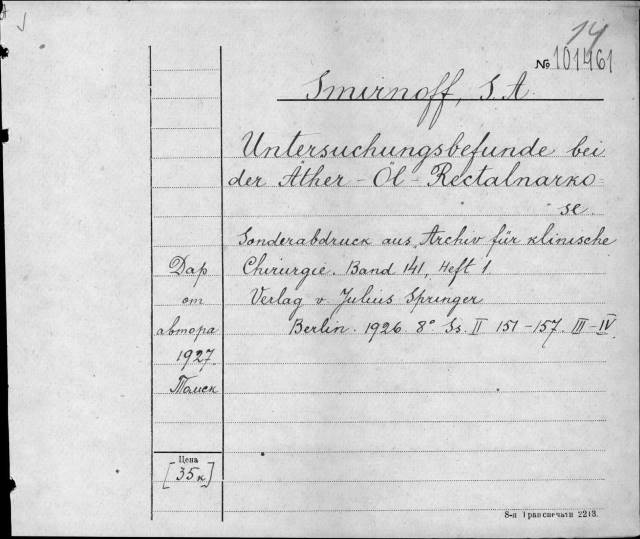 14
№ 101461
Smirnoff, S. A.
Untersuchungsbefunde bei
der Äther - Öl - Rectalnarko=
se.
Sonderabdruck aus Archiv für klinische
Дар Chirurgie. Band 141, Heft 1.
от Verlag v. Julius Springer
автора Berlin. 1926. 8° Ss. II 151-157. III-IV
1927
Томск
Цена
[35к]
8-я Транспечати 2213.